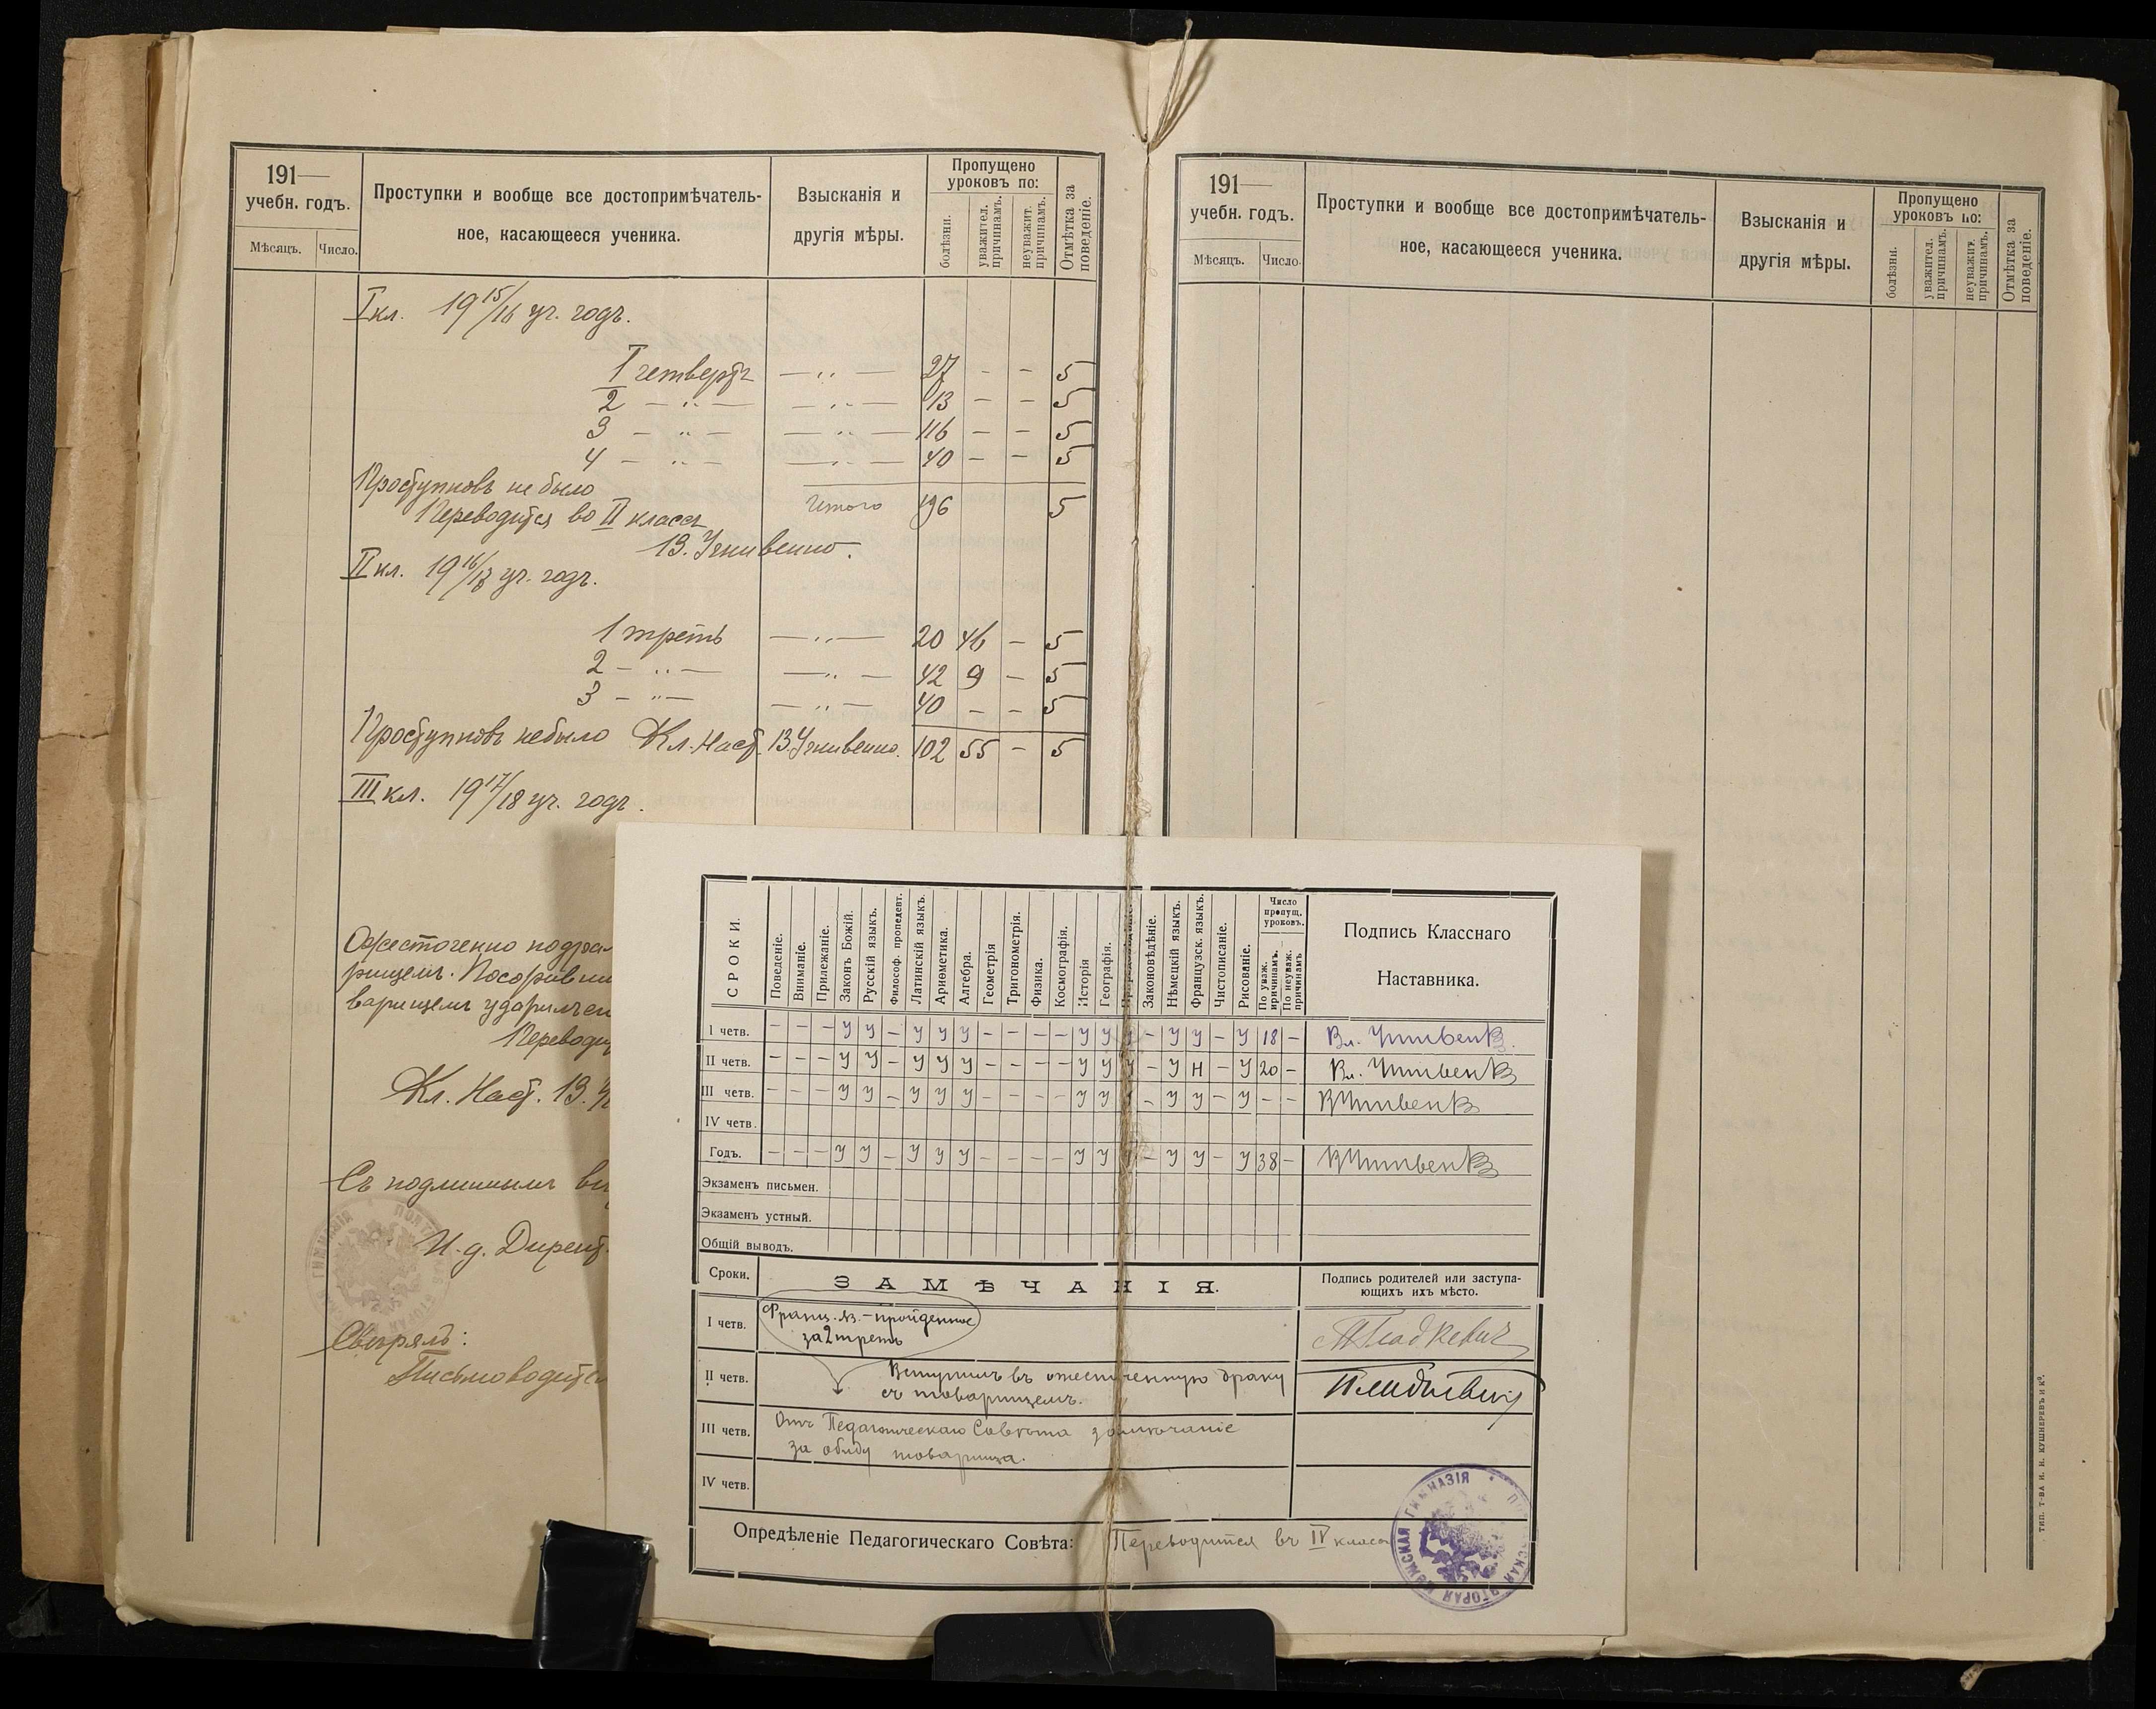 191—
учебн. годъ.
Мѣсяцъ. Число.
Проступки и вообще все достопримѣчатель-
ное, касающееся ученика.
Взысканія и
другія мѣры.
Пропущено
уроковъ по:
болѣзни.
уважител. причинамъ.
неуважит. причинамъ.
Отмѣтка за поведеніе.
I кл. 19 15/16 уч. годъ.
I четверть —..— 27 - - 5
2 — .. — —..— 13 — — 5
3 — .. — —..— 116 — — 5
4 — .. — —..— 40 — — 5
Проступковъ не было
Итого 196 5
Переводится во II классъ
В. Учнивенко.
II кл. 19 16/17 уч. годъ.
1 треть —..— 20 46 — 5
2 — .. — —..— 42 9 — 5
3 — .. — —..— 40 — — 5
Проступковъ не было Кл. Наст. 102 55 — 5
III кл. 19 17/18 уч. годъ.
Ожесточенно подрал
рищемъ.
варищемъ ударилъ
Переводи
Кл. Наст. В.
Съ подлиннымъ в
И. д. Директ.
Свѣрялъ:
Письмоводите
191—
учебн. годъ.
Мѣсяцъ. Число.
Проступки и вообще все достопримѣчатель-
ное, касающееся ученика.
Взысканія и
другія мѣры.
Пропущено
уроковъ по:
болѣзни.
уважител. причинамъ.
неуважит. причинамъ.
Отмѣтка за поведеніе.
ТИП. Т-ВА И. Н. КУШНЕРЕВЪ и Кº.
СРОКИ.
Поведеніе.
Вниманіе.
Прилежаніе.
Законъ Божій.
Русскій языкъ.
Философ. пропедевт.
Латинскій языкъ.
Ариѳметика.
Алгебра.
Геометрія
Тригонометрія.
Физика.
Космографія.
Исторія
Географія.
Законовѣдѣніе.
Нѣмецкій языкъ.
Французск. языкъ.
Чистописаніе.
Рисованіе.
Число
пропущ.
уроковъ.
По уваж. причинамъ.
По неуваж. причинамъ
Подпись Класснаго
Наставника.
I четв. — — — у у — у у у — — — — у у у — у у — у 18 —
II четв. — — — у у — у у у — — — — у у у — у н — у 20 —
III четв. — — — у у — у у у — — — — у у у — у у — у — —
IV четв.
Годъ. — — — у у — у у у — — — — у у у — у у — у 38 —
Экзаменъ письмен.
Экзаменъ устный.
Общій выводъ.
Сроки.
ЗАМѢЧАНІЯ.
Подпись родителей или заступа-
ющихъ ихъ мѣсто.
I четв. Франц. яз. — пройденное
за 2 треть
II четв. Вступилъ въ ожесточенную драку
съ товарищемъ.
III четв. Отъ Педагогическаго Совѣта замѣчаніе
за обиду товарища.
IV четв.
Опредѣленіе Педагогическаго Совѣта: Переводится въ IV классъ
МУЖСКАЯ ГИМНАЗІЯ
ВТОРАЯ